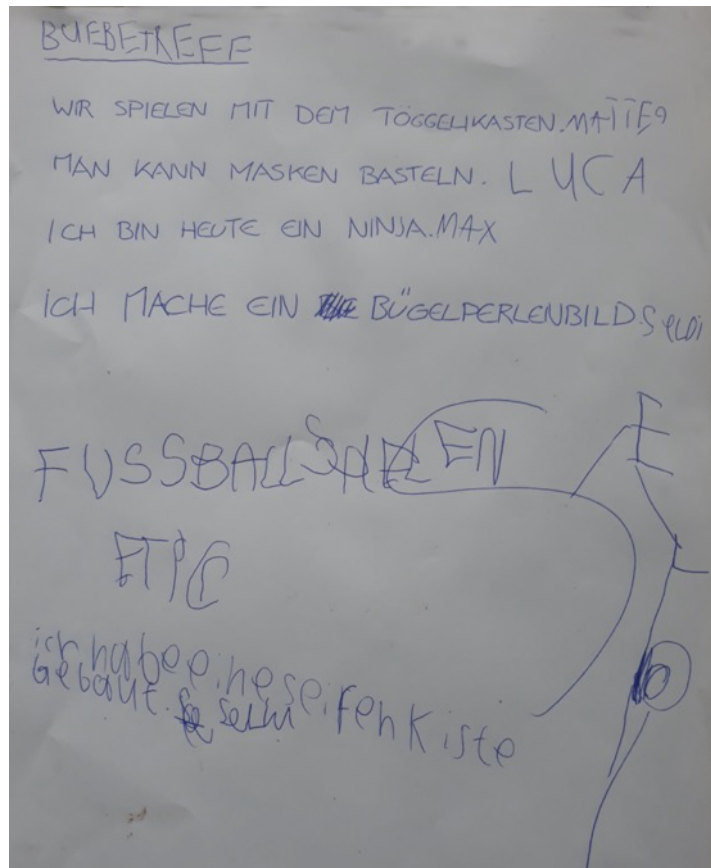 BUEBETREFF
WIR SPIELEN MIT DEM TÖGGELIKASTEN. MATTEO
MAN KANN MASKEN BASTELN. LUCA
ICH BIN HEUTE EIN NINJA. MAX
ICH MACHE EIN BÜGELPERLENBILD.
FUSSBALLSPIELEN
ich habe eine seifenkiste
Gebaut.